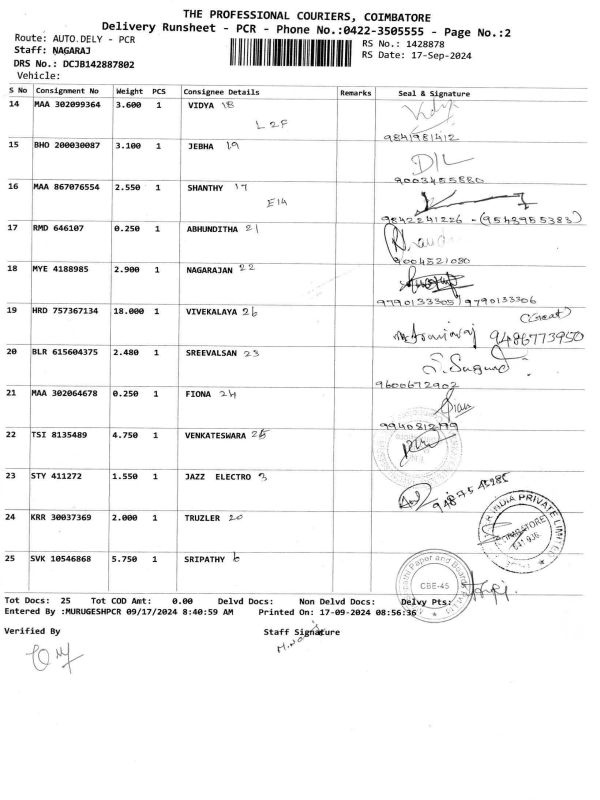 THE PROFESSIONAL COURIERS, COIMBATORE
Delivery Runsheet - PCR - Phone No.:0422-3505555 - Page No.:2
Route: AUTO.DELY - PCR
RS No.: 1428878
Staff: NAGARAJ
RS Date: 17-Sep-2024
DRS No.: DCJB142887802
Vehicle:
S No Consignment No Weight PCS Consignee Details Remarks Seal & Signature
14 MAA 302099364 3.600 1 VIDYA 18
L 2F
9841981412
15 BHO 200030087 3.100 1 JEBHA 19
9003455880
16 MAA 867076554 2.550 1 SHANTHY 17
E14
9842241226 - (9548955383)
17 RMD 646107 0.250 1 ABHUNDITHA 21
9004521080
18 MYE 4188985 2.900 1 NAGARAJAN 22
9790133305/9790133306
19 HRD 757367134 18.000 1 VIVEKALAYA 26
9486773950
20 BLR 615604375 2.480 1 SREEVALSAN 23
9600672902
21 MAA 302064678 0.250 1 FIONA 24
22 TSI 8135489 4.750 1 VENKATESWARA 25
23 STY 411272 1.550 1 JAZZ ELECTRO 3
24 KRR 30037369 2.000 1 TRUZLER 20
INDIA PRIVATE LIMITED
25 SVK 10546868 5.750 1 SRIPATHY 6
Paper and
CBE-45
Tot Docs: 25 Tot COD Amt: 0.00 Delvd Docs: Non Delvd Docs: Delvy Pts:
Entered By :MURUGESHPCR 09/17/2024 8:40:59 AM Printed On: 17-09-2024 08:56:36
Verified By Staff Signature